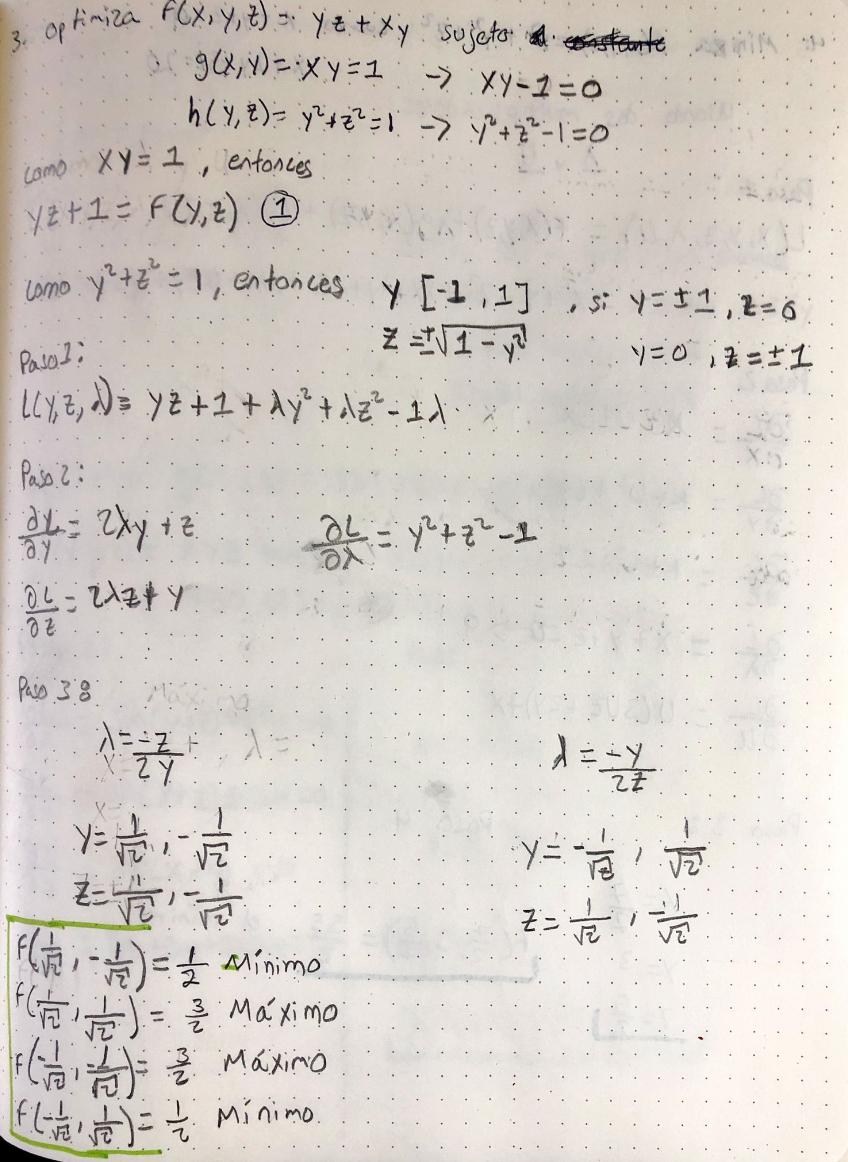 3. Optimiza f(x,y,z) = yz + xy sujeto a
g(x,y) = xy = 1 → xy - 1 = 0
h(y,z) = y² + z² = 1 → y² + z² - 1 = 0
como xy = 1, entonces
yz + 1 = F(y,z) ①
como y² + z² = 1, entonces y [-1, 1], si y = ±1, z = 0
z = ±√(1 - y²) y = 0, z = ±1
Paso 1:
L(y,z,λ) = yz + 1 + λy² + λz² - 1λ
Paso 2:
∂L/∂y = 2λy + z ∂L/∂λ = y² + z² - 1
∂L/∂z = 2λz + y
Paso 3:
λ = -z/2y λ = -y/2z
y = 1/√2, -1/√2 y = -1/√2, 1/√2
z = 1/√2, -1/√2 z = 1/√2, -1/√2
f(1/√2, -1/√2) = 1/2 Mínimo
f(1/√2, 1/√2) = 3/2 Máximo
f(-1/√2, -1/√2) = 3/2 Máximo
f(-1/√2, 1/√2) = 1/2 Mínimo